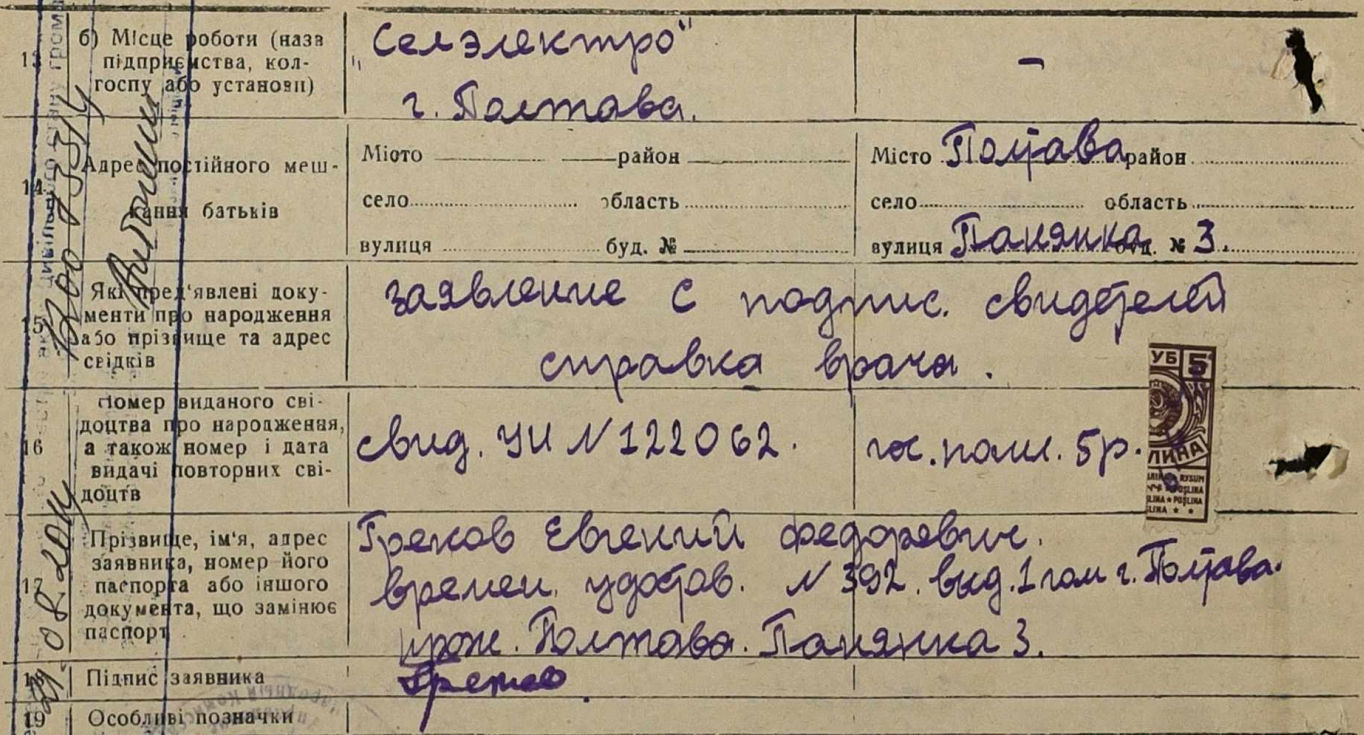 13
б) Місце роботи (назв
підприємства, кол-
госпу або установи)
„Селэлектро"
г. Полтава.
–
14
Адрес постійного меш-
кання батьків
Місто район
село область
вулиця буд. №
Місто Полтава район
село область
вулиця Панянка буд. № 3.
15
Які пред'явлені доку-
менти про народження
або прізвище та адрес
свідків
заявление с подпис. свидетелей
справка врача.
16
Номер виданого сві-
доцтва про народження,
а також номер і дата
видачі повторних сві-
доцтв
свид. УИ N 122062.
гос. пошл. 5р.
УБ 5
17
Прізвище, ім'я, адрес
заявника, номер його
паспорта або іншого
документа, що замінює
паспорт
Греков Евгений Федорович.
времен. удостов. N 392. выд. 1 гом г. Полтава.
прож. Полтава. Панянка 3.
Підпис заявника
Греков
19
Особливі позначки